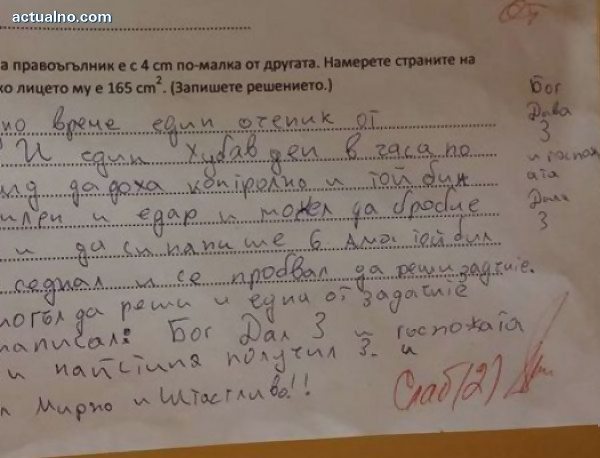 actualno.com
а правоъгълник е с 4 cm по-малка от другата. Намерете страните на
ко лицето му е 165 cm². (Запишете решението.)
но време един оченик от
И един хубав ден в часа по
да доха контролно и той бил
и едар и можел да
и да си напише 6. Ама той бил
седнал и се пробвал да реши задчие.
могъл да реши и една от задачие
написал: Бог Дал 3 и госпожата
и найстина получил 3. и
Мирно и Штастливо!!
Бог
Дава
3
и госпож
ата
Дала
3
Слаб (2)